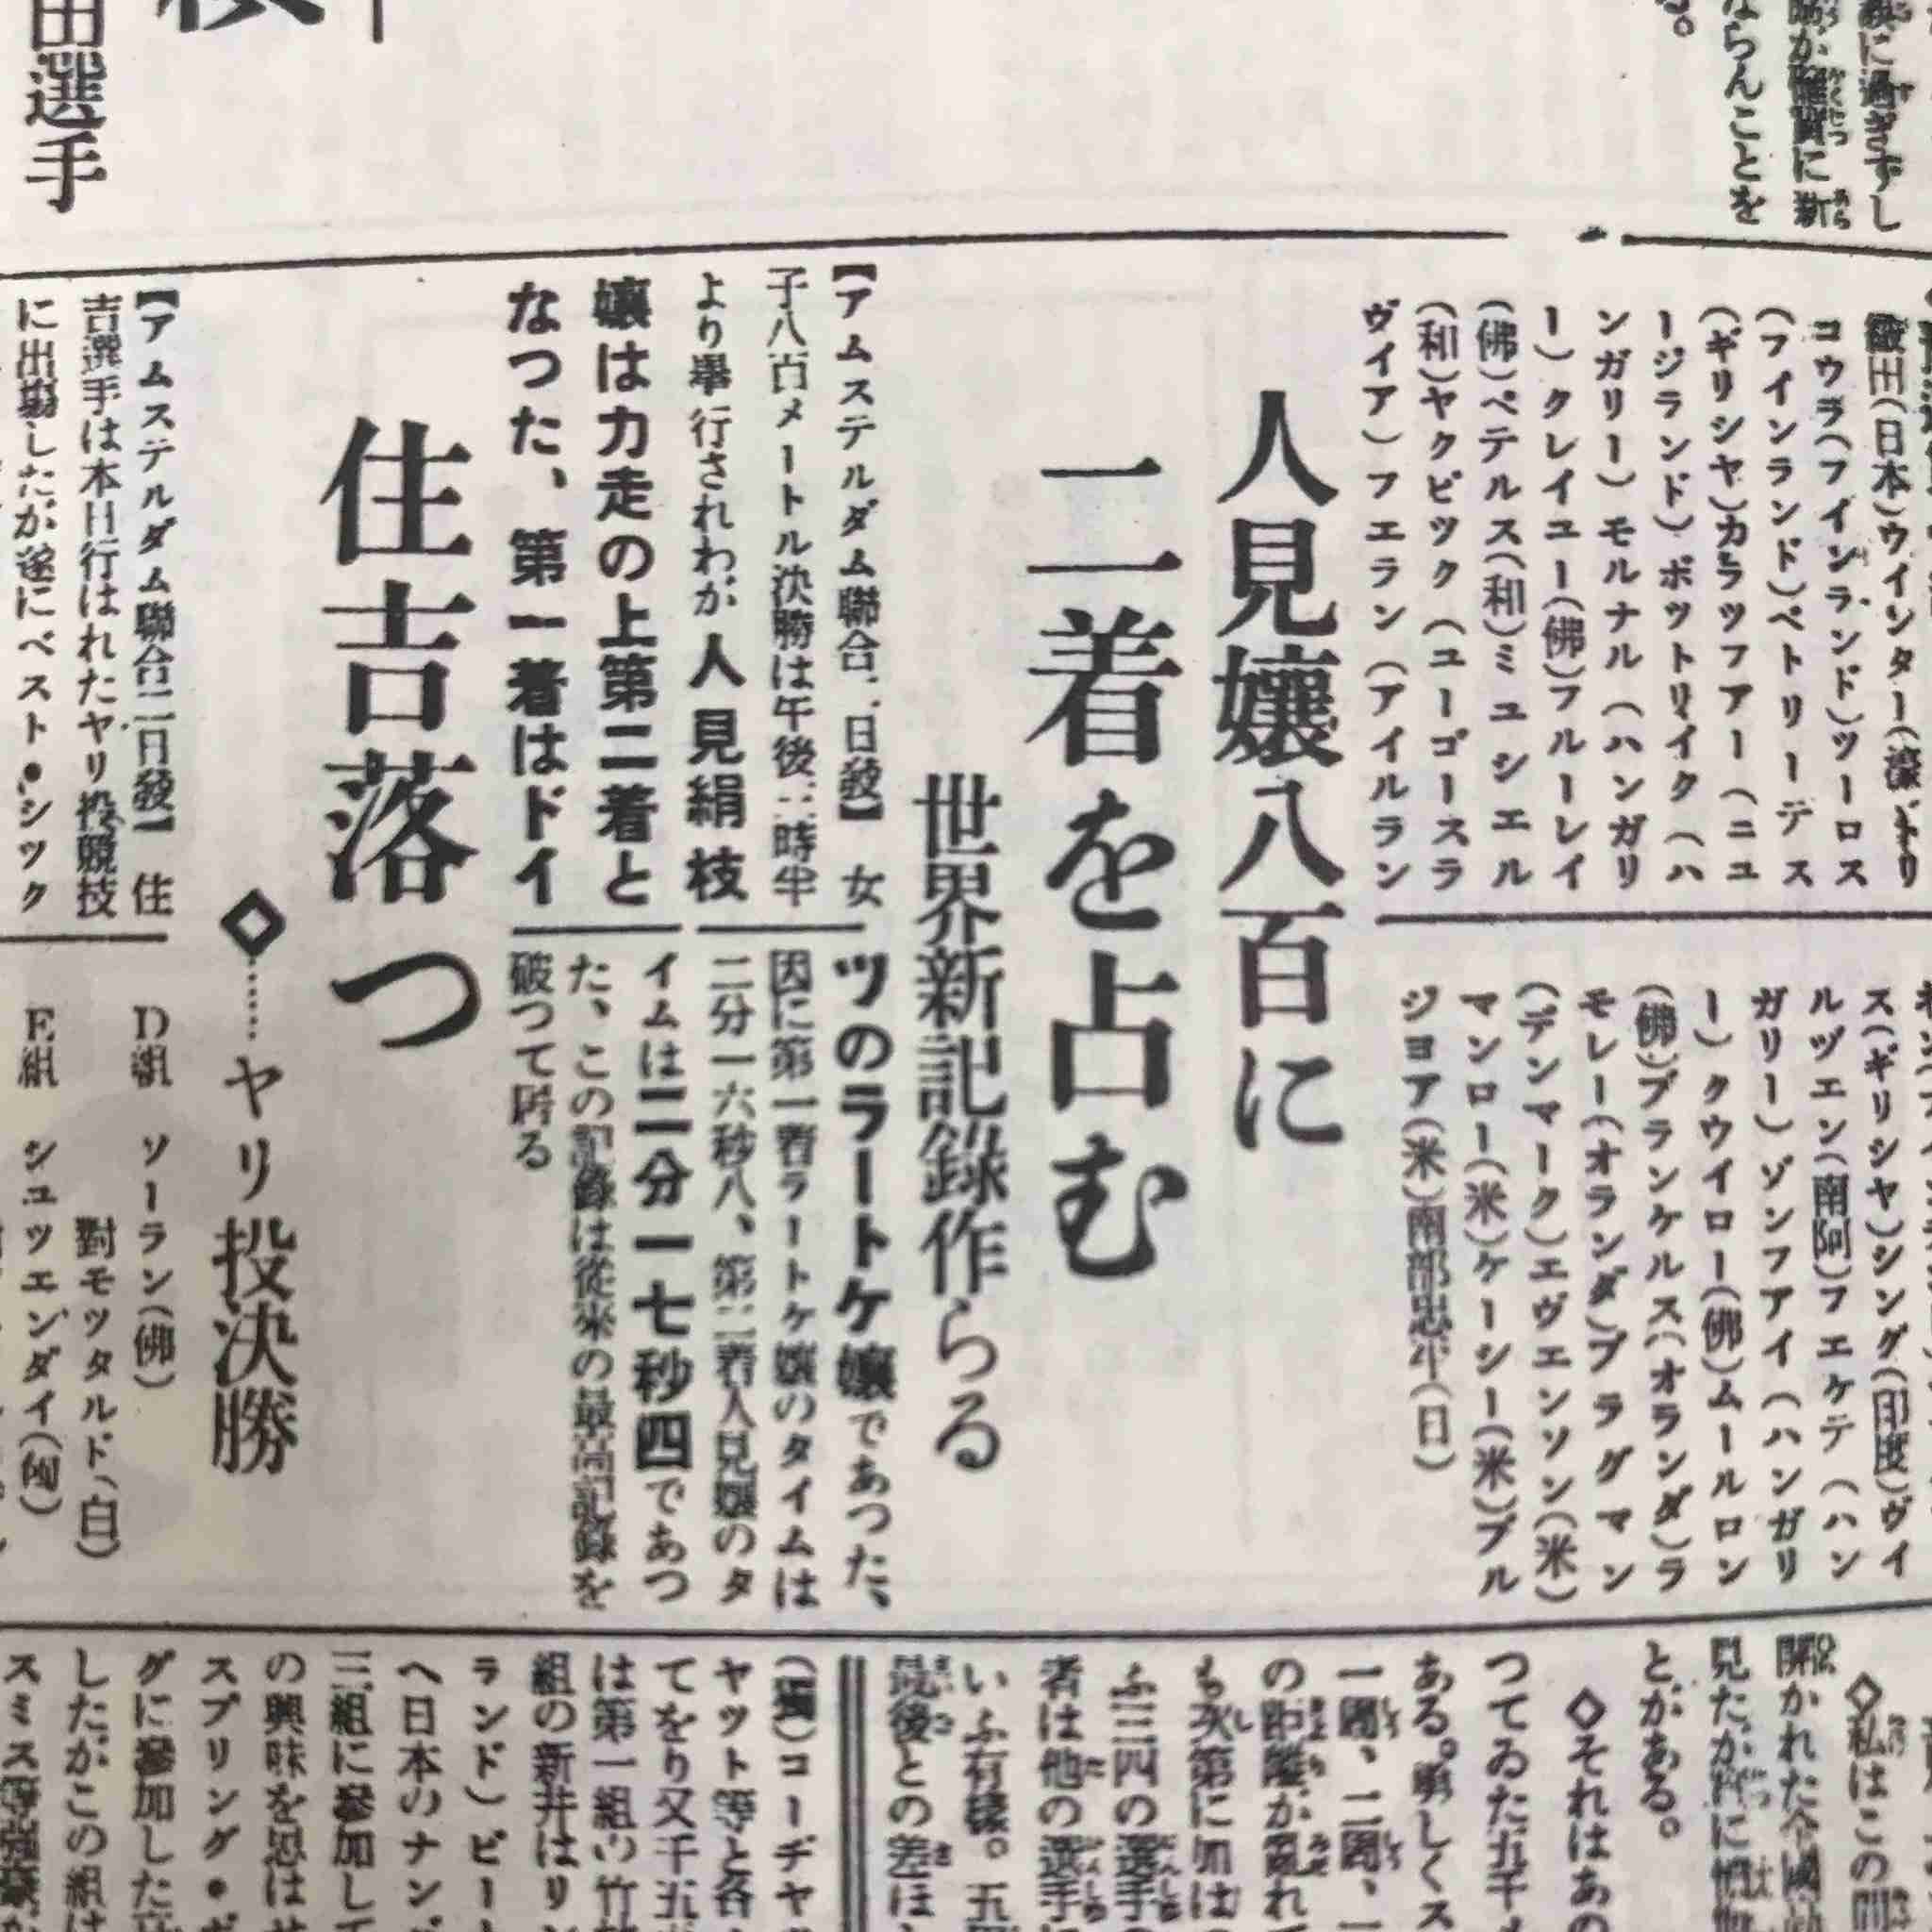 田選手
ならんことを
敏田(日本)ウインター(濠)トリ
コウラ(フインランド)ツーロス
(フインランド)ペトリーデス
(ギリシヤ)カラツフアー(ニユ
ージランド)ボツトリイク(ハ
ンガリー)モルナル(ハンガリ
ー)クレイユー(佛)フルーレイ
(佛)ペテルス(和)ミユシエル
(和)ヤクビツク(ユーゴースラ
ヴイア)フエラン(アイルラン
ス(ギリシヤ)シング(印度)ヴイ
ルヅエン(南阿)フエケテ(ハン
ガリー)ゾンフアイ(ハンガリ
ー)クウイロー(佛)ムールロン
(佛)ブランケルス(オランダ)ラ
モレー(オランダ)ブラグマン
(デンマーク)エヴエンソン(米)
マンロー(米)ケーシー(米)ブル
ジヨア(米)南部忠平(日)
人見孃八百に
二着を占む
世界新記錄作らる
【アムステルダム聯合二日發】女
子八百メートル決勝は午後二時半
より擧行されわが人見絹枝
孃は力走の上第二着と
なつた、第一着はドイ
ツのラートケ孃であつた、
因に第一着ラートケ孃のタイムは
二分一六秒八、第二着人見孃のタ
イムは二分一七秒四であつ
た、この記錄は從來の最高記錄を
破つて居る
住吉落つ
◇……ヤリ投決勝
【アムステルダム聯合二日發】住
吉選手は本日行はれたヤリ投競技
に出場したが遂にベスト・シツク
D組 ソーラン(佛)
對モツタルド(白)
E組 シユツエンダイ(阿)
◇私はこの間
開かれた全國
見たが
とがある。
◇それはあの
つてゐた五千メ
ある。勇しくス
一周、二周、
の距離が亂れ
も次第に加は
ふ三四の選手の
者は他の選手
いふ有樣。五
最後との差は
(獨)コーヂヤ
ヤツト等と各
てをり又千五
は第一組の竹
組の新井はリ
ランド)ピー
へ日本のナン
三組に參加し
の興味を思はせ
スプリング・ボ
グに參加した
したがこの組は
スミス等強豪